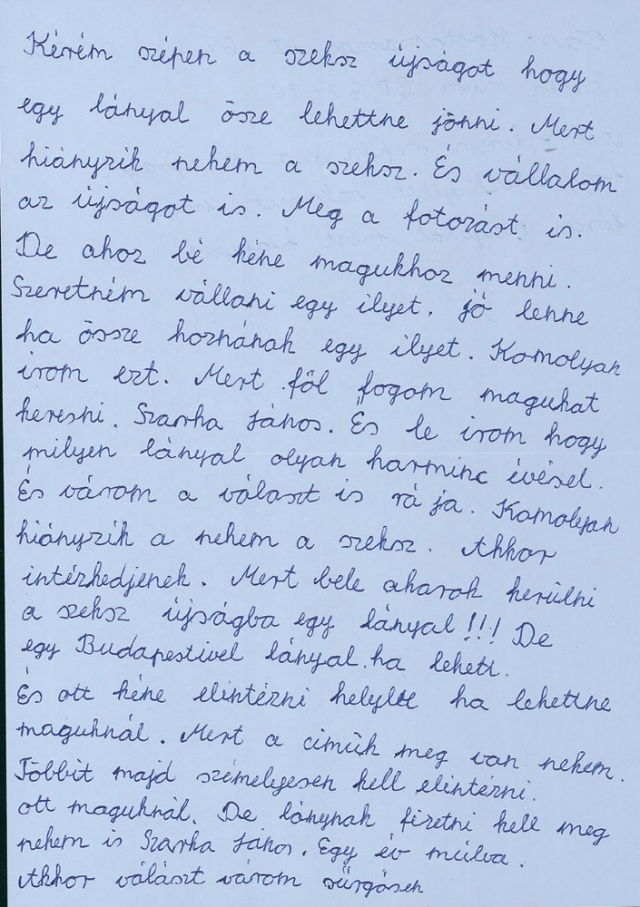 Kérém szépen a szeksz újságot hogy
egy lányal ösze lehettne jönni. Mert
hiányzik nekem a szeksz. És vállalom
az újságot is. Meg a fotozást is.
De ahoz bé kéne magukhoz menni.
Szeretném vállani egy ilyet. jó lenne
ha össze hoznának egy ilyet. Komolyan
irom ezt. Mert föl fogom magukat
keresni. Szarka János. És le irom hogy
milyen lányal olyan harminc évésel.
És várom a választ is rá ja. Komolyan
hiányzik a nekem a szeksz. Akkor
intézkedjenek. Mert bele akarok kerülni
a szeksz újságba egy lányal!!! De
egy Budapestivel lányal. ha lehett.
És ott kéne elintézni helylet ha lehettne
maguknál. Mert a cimük meg van nekem.
Többit majd személyesen kell elintézni.
ott maguknál. De lánynak fizetni kell meg
nekem is Szarka János. Egy év múlva.
Akkor válászt várom sürgösen